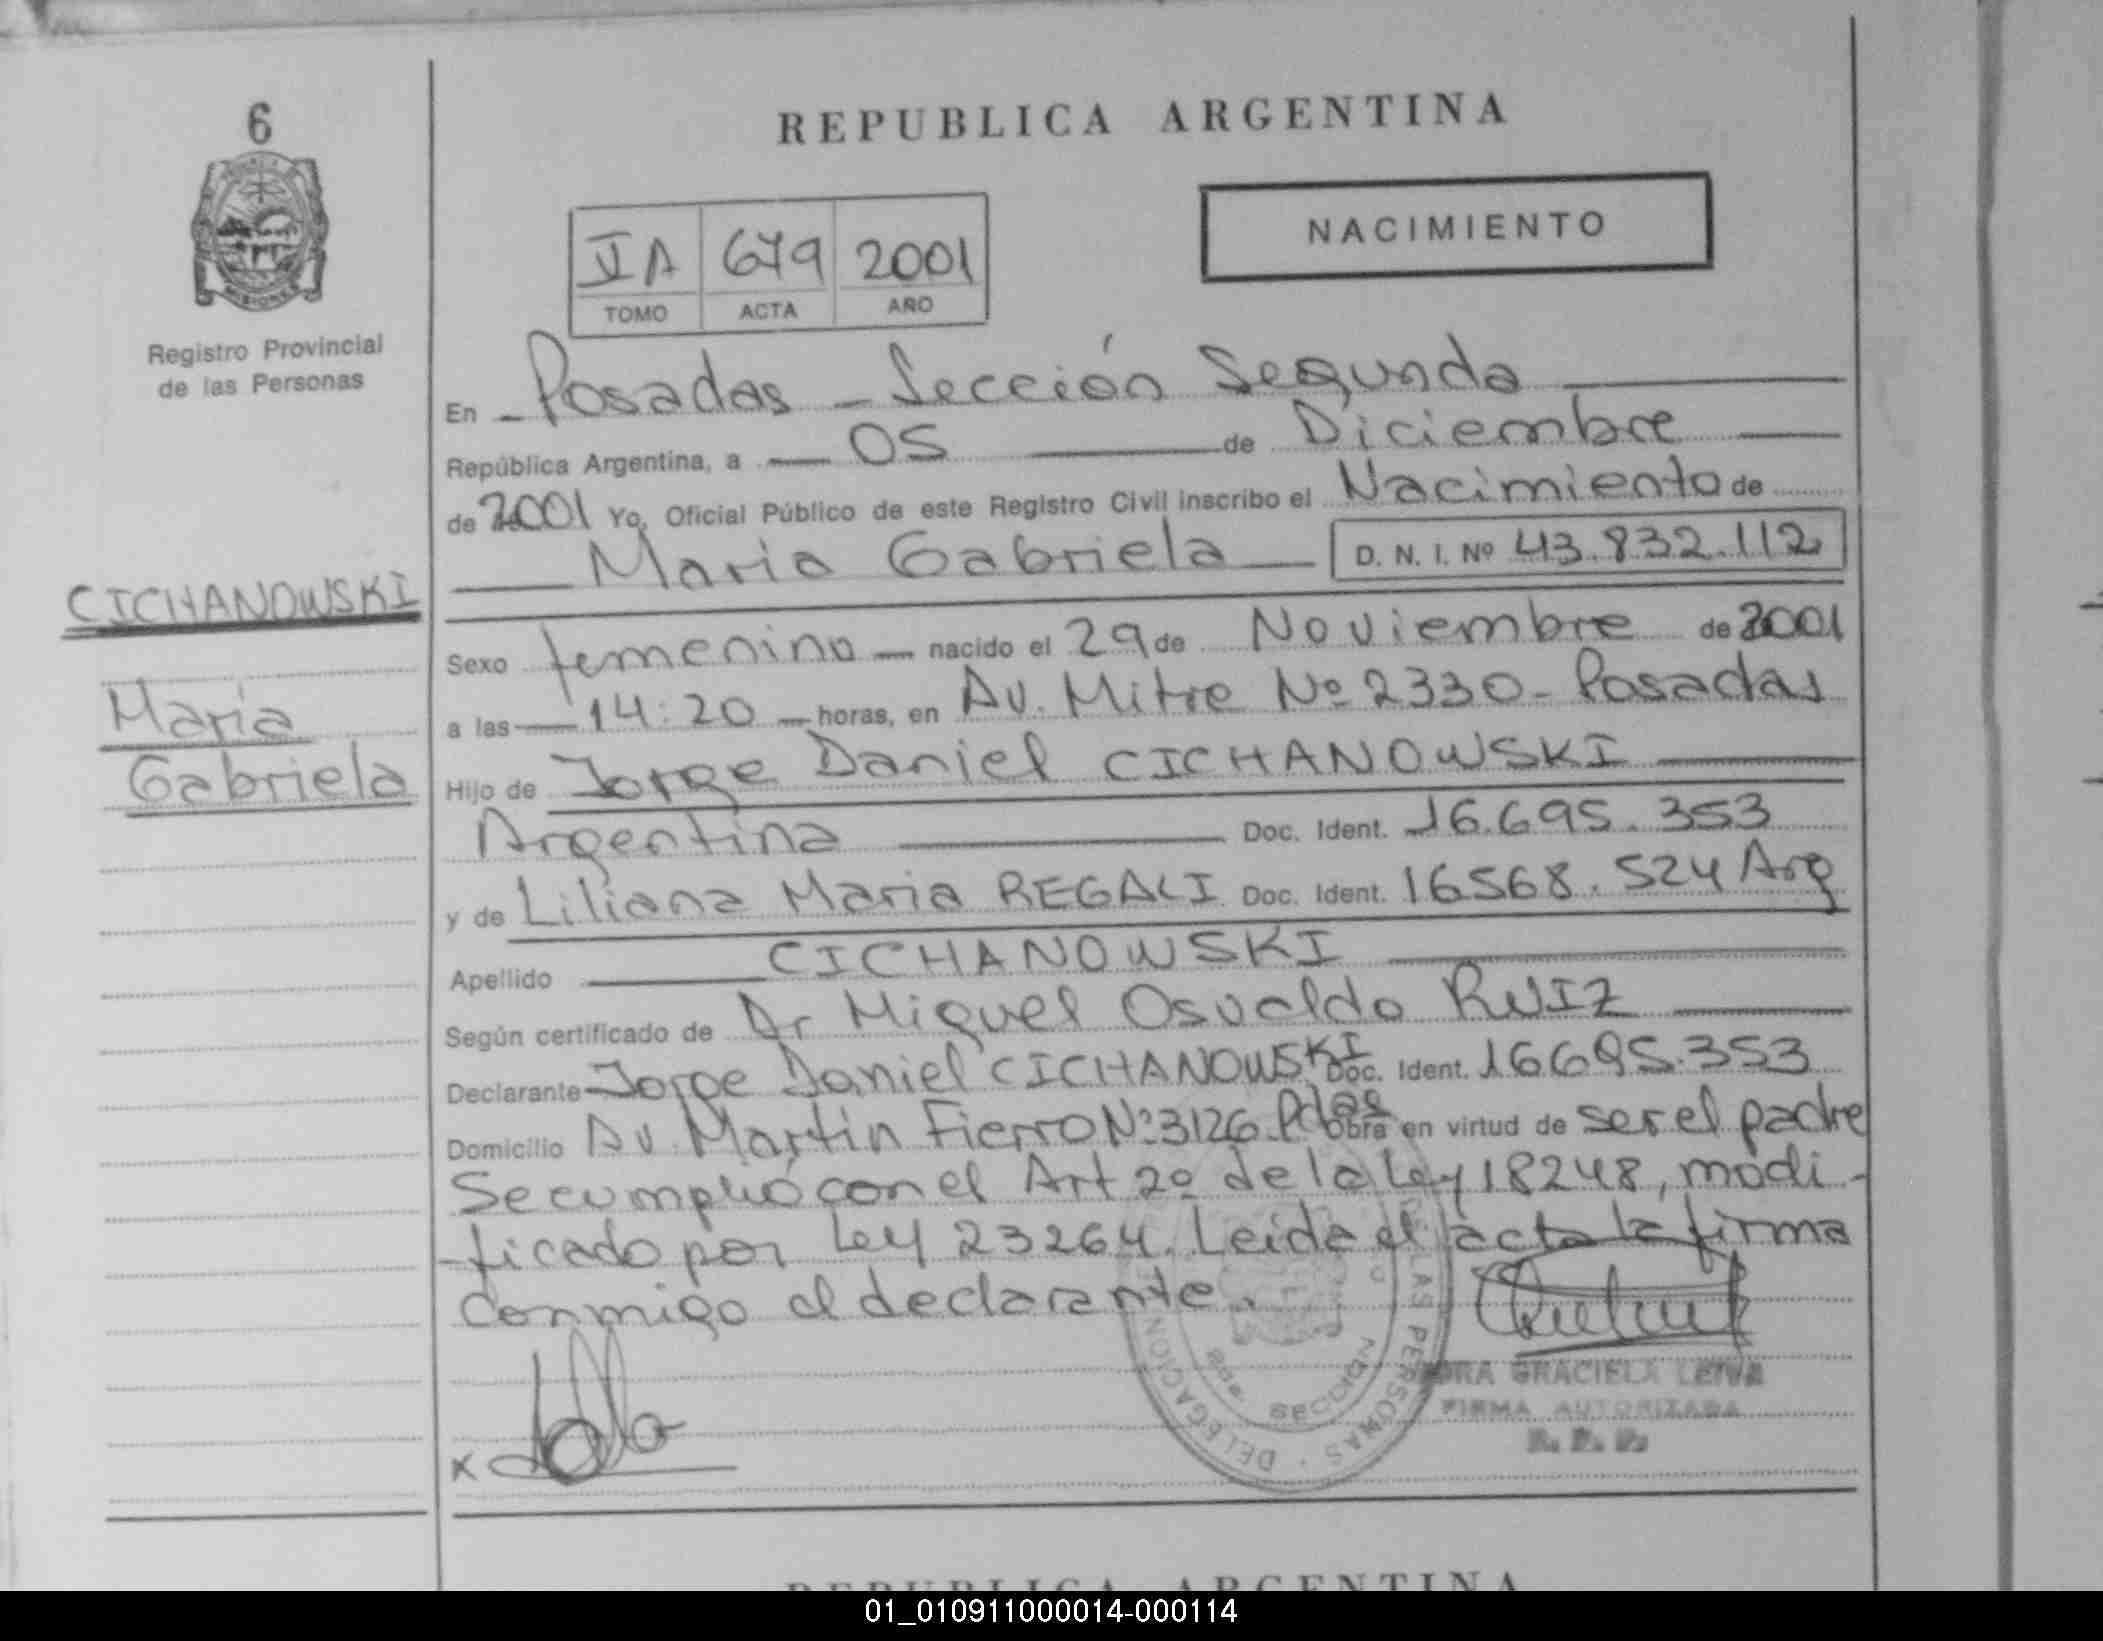 6
MISIONES
Registro Provincial
de las Personas
CICHANOWSKI
Maria
Gabriela
REPUBLICA ARGENTINA
NACIMIENTO
IIA 679 2001
TOMO ACTA AÑO
En - Posadas - Sección Segunda
República Argentina, a 05 de Diciembre
de 2001 Yo, Oficial Público de este Registro Civil inscribo el Nacimiento de
Maria Gabriela D. N. I. Nº 43.832.112
Sexo femenino nacido el 29 de Noviembre de 2001
a las 14:20 horas, en Av. Mitre Nº 2330 - Posadas
Hijo de Jorge Daniel CICHANOWSKI
Argentina Doc. Ident. 16.695.353
y de Liliana Maria REGALI Doc. Ident. 16568.524 Arg
Apellido CICHANOWSKI
Según certificado de Dr Miguel Osvaldo RUIZ
Declarante Jorge Daniel CICHANOWSKI Doc. Ident. 16695.353
Domicilio Av. Martín Fierro Nº 3126 Pdas Obra en virtud de ser el padre
Se cumplió con el Art 2º de la Ley 18248, modi-
-ficado por Ley 23264. Leída el acta la firma
conmigo el declarante.
x
DELEGACION LAS PERSONAS
SECCION
GRACIELA LEIVA
FIRMA AUTORIZADA
R. P. P.
REPUBLICA ARGENTINA
01_010911000014-000114